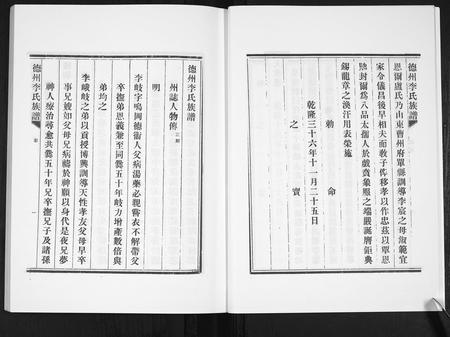 德州李氏族譜
恩爾盧氏乃山東曹州府單縣訓導李宸之母淑範宜
家令儀昌後早相夫而教子俾移孝以作忠茲以覃恩
馳封爾為八品太孺人於戲賁象服之端嚴誕膺鉅典
錫龍章之渙汗用表榮施
勅命
乾隆三十六年十一月二十五日
之寶
德州李氏族譜
州誌人物傳
明
李岐字鳴岡德衛人父病湯藥必親嘗衣不解帶父
卒撫弟恩義兼至同爨五十年岐力增產數倍與
弟均之
李峨岐之弟以貢授博興訓導天性孝友父母早卒
事兄嫂如父母兄病禱於神願以身代是夜兄夢
神人療治尋愈共爨五十年兄卒撫兄子及諸孫
一